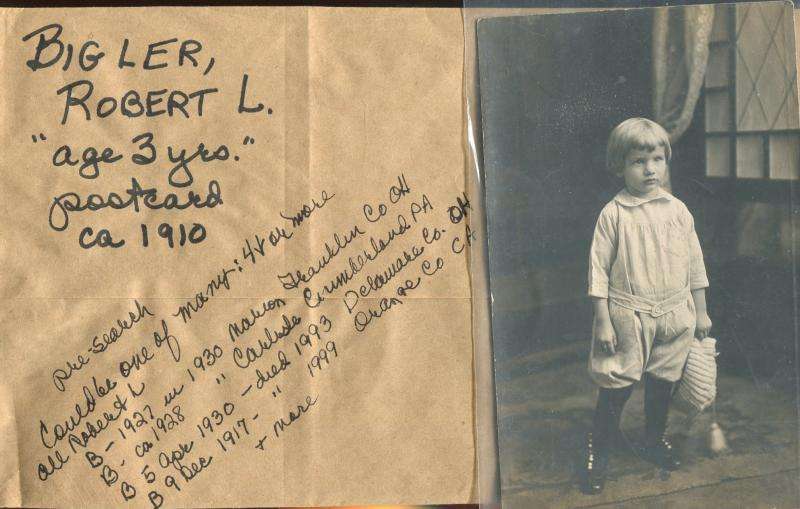 BIGLER,
ROBERT L.
"age 3 yrs."
postcard
ca 1910
pre-search
Could be one of many: 4 or more
all Robert L
B - 1927 in 1930 Marion Franklin Co OH
B - ca 1928 " Carlisle Cumberland PA
B 5 Apr 1930 - died 1993 Delaware Co. OH
B 9 Dec 1917 - " 1999 Orange Co CA
+ more